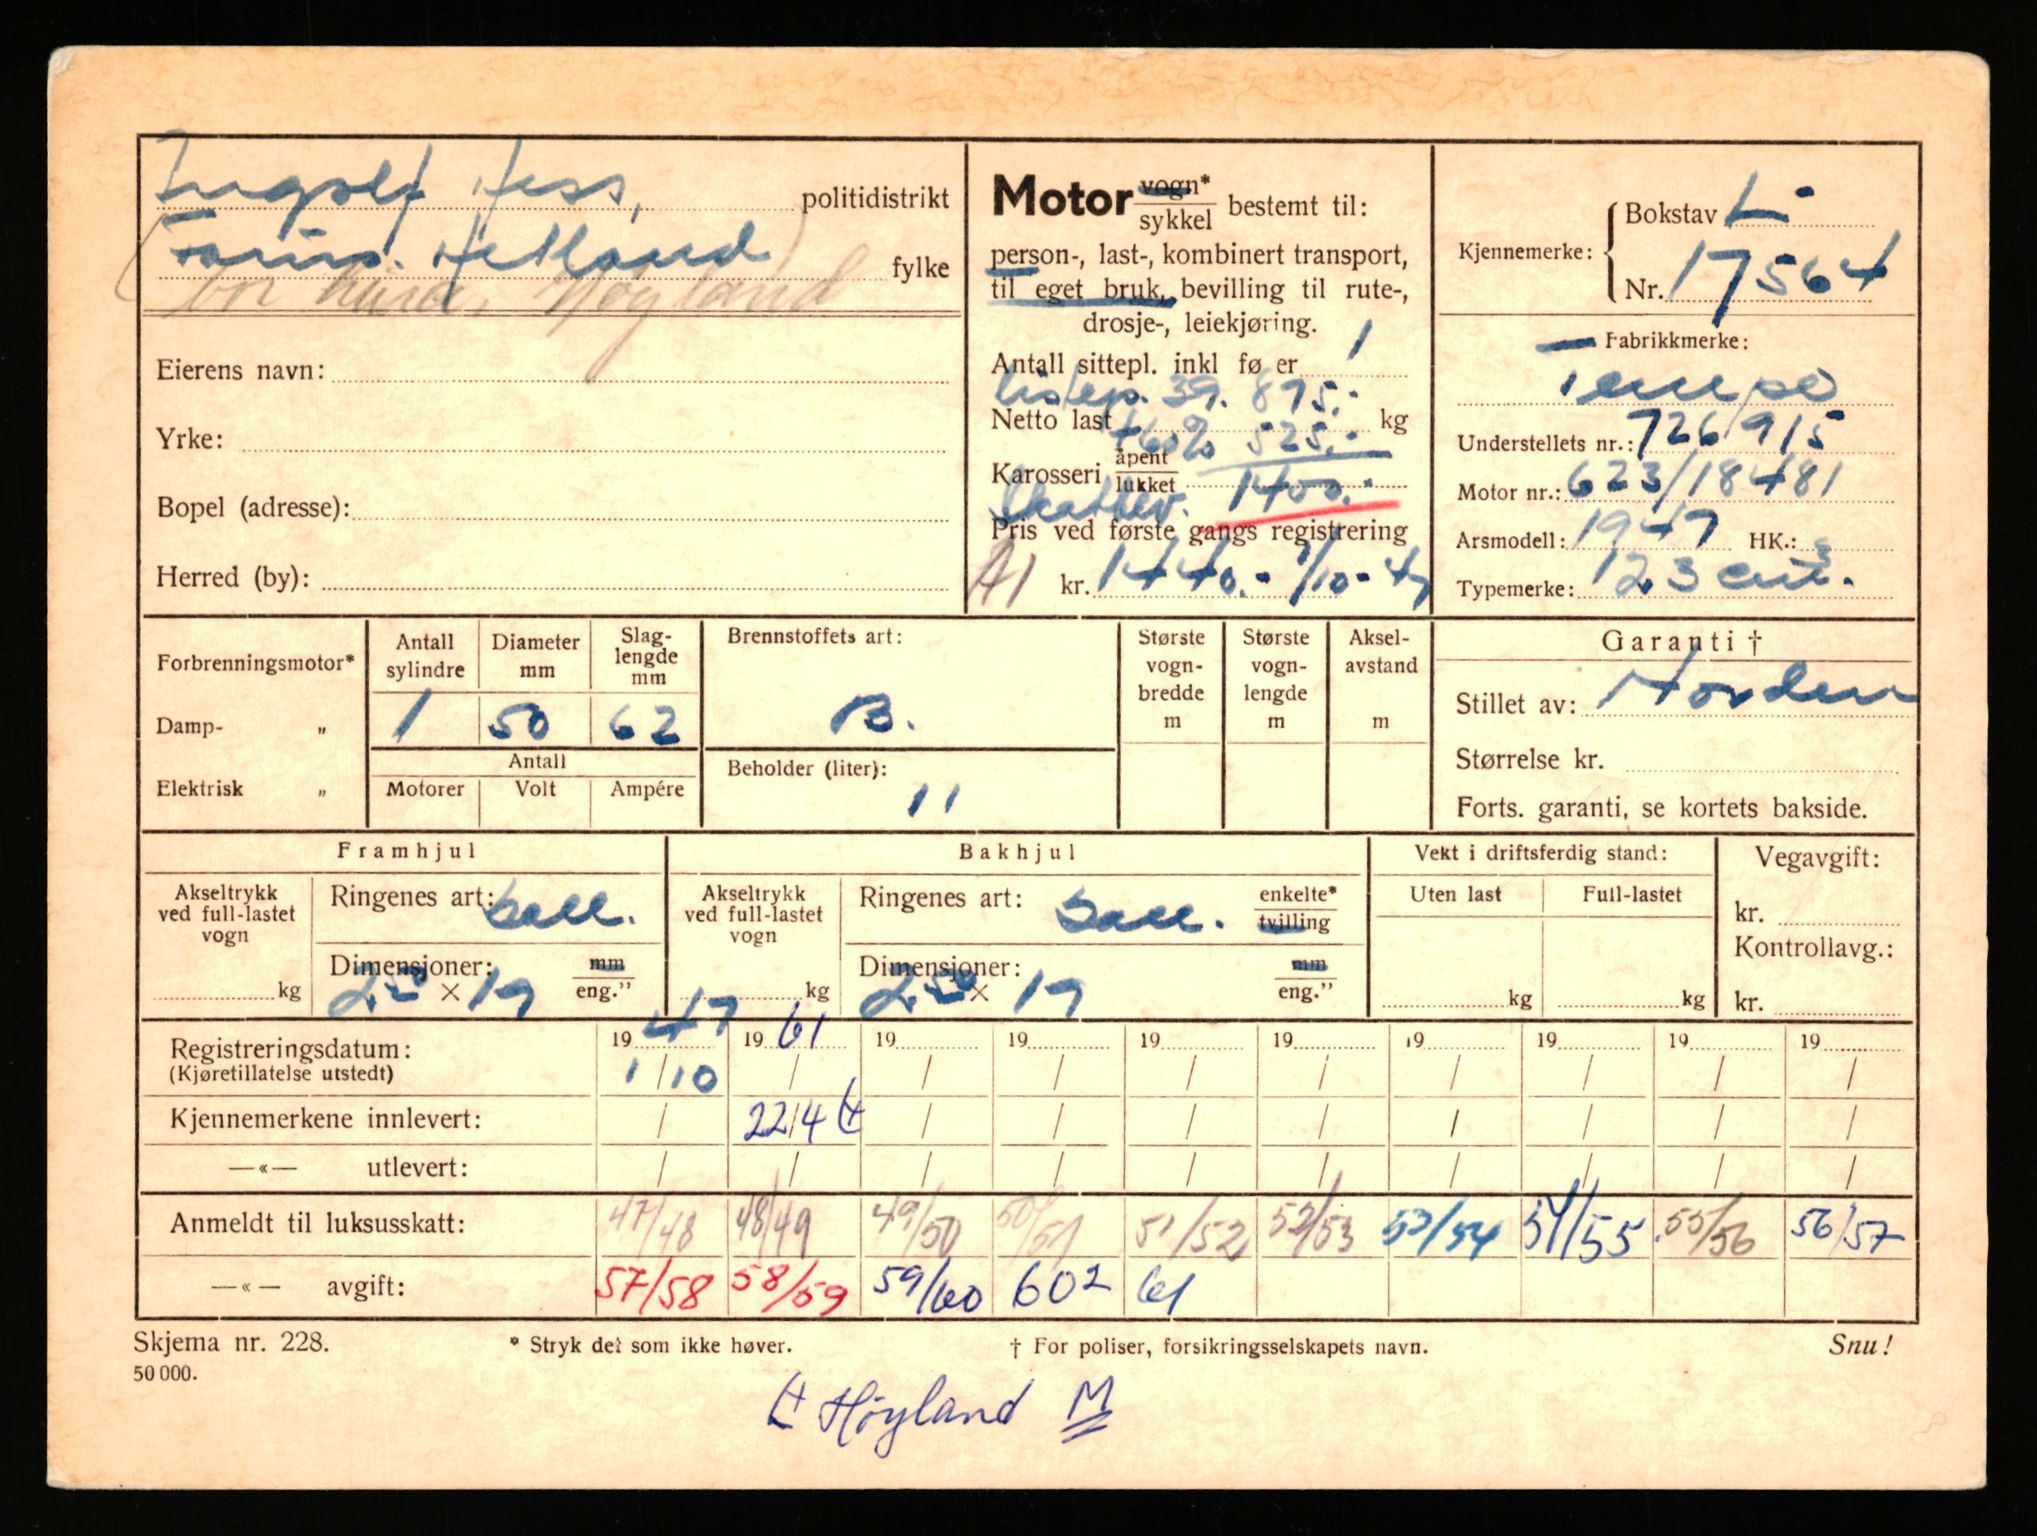 Ingolf Hess, politidistrikt
(Forus. Hetland) fylke
Høyland
Eierens navn:
Yrke:
Bopel (adresse):
Herred (by):
Motor vogn* / sykkel bestemt til:
person-, last-, kombinert transport,
til eget bruk, bevilling til rute-,
drosje-, leiekjøring.
Antall sittepl. inkl fø er 1
Listep. 39. 875.-
Netto last +60% 525.- kg
Karosseri åpent / lukket 1400.-
Skattev.
Pris ved første gangs registrering
A1 kr. 1440.- 1/10-47
Kjennemerke: Bokstav L-
Nr. 17564
Fabrikkmerke:
Tempo
Understellets nr.: 726915
Motor nr.: 623/18481
Arsmodell: 1947 HK.:
Typemerke: 123 cm³.
Forbrenningsmotor*
Damp- „
Elektrisk „
Antall sylindre Diameter mm Slag-lengde mm
1 50 62
Antall
Motorer Volt Ampére
Brennstoffets art:
B.
Beholder (liter):
11
Største vogn-bredde m
Største vogn-lengde m
Aksel-avstand m
Garanti †
Stillet av: Norden
Størrelse kr.
Forts. garanti, se kortets bakside.
Framhjul
Akseltrykk ved full-lastet vogn kg
Ringenes art: ball.
Dimensjoner: 250 × 19 mm / eng.”
Bakhjul
Akseltrykk ved full-lastet vogn kg
Ringenes art: ball. enkelte* / tvilling
Dimensjoner: 250 × 19 mm / eng.”
Vekt i driftsferdig stand:
Uten last Full-lastet
kg kg
Vegavgift:
kr.
Kontrollavg.:
kr.
19 47 19 61 19 19 19 19 19 19 19 19
Registreringsdatum: 1/10 / / / / / / / / /
(Kjøretillatelse utstedt)
Kjennemerkene innlevert: / 22/4 / / / / / / / /
—«— utlevert: / / / / / / / / / /
Anmeldt til luksusskatt: 47/48 48/49 49/50 50/51 51/52 52/53 53/54 54/55 55/56 56/57
—«— avgift: 57/58 58/59 59/60 602 61
Skjema nr. 228. * Stryk det som ikke høver. † For poliser, forsikringsselskapets navn. Snu!
50 000.
Høyland M